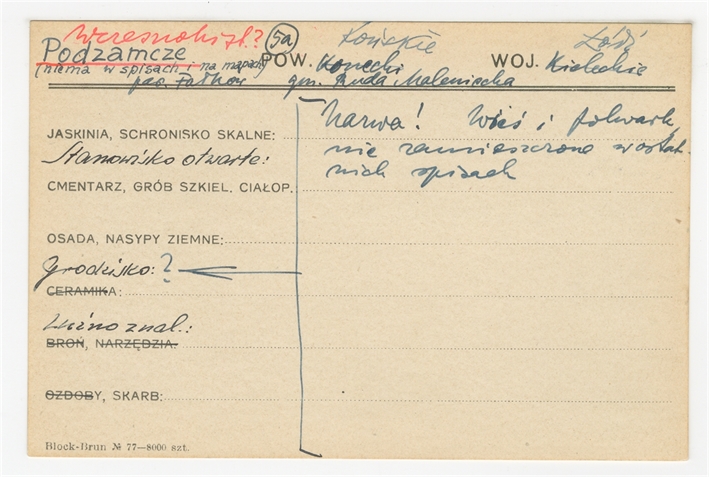 Wczesnohist.? 5a Końskie Łódź
Podzamcze POW. Konecki WOJ. Kieleckie
(niema w spisach i na mapach) gm. Ruda Maleniecka
par. Fałków
Nazwa! Wieś i folwark,
JASKINIA, SCHRONISKO SKALNE: nie zamieszczone w ostat-
Stanowisko otwarte: nich spisach
CMENTARZ, GRÓB SZKIEL. CIAŁOP.
OSADA, NASYPY ZIEMNE:
Grodzisko: ?
CERAMIKA:
Luźno znal.:
BROŃ, NARZĘDZIA.
OZDOBY, SKARB:
Block-Brun № 77—8000 szt.